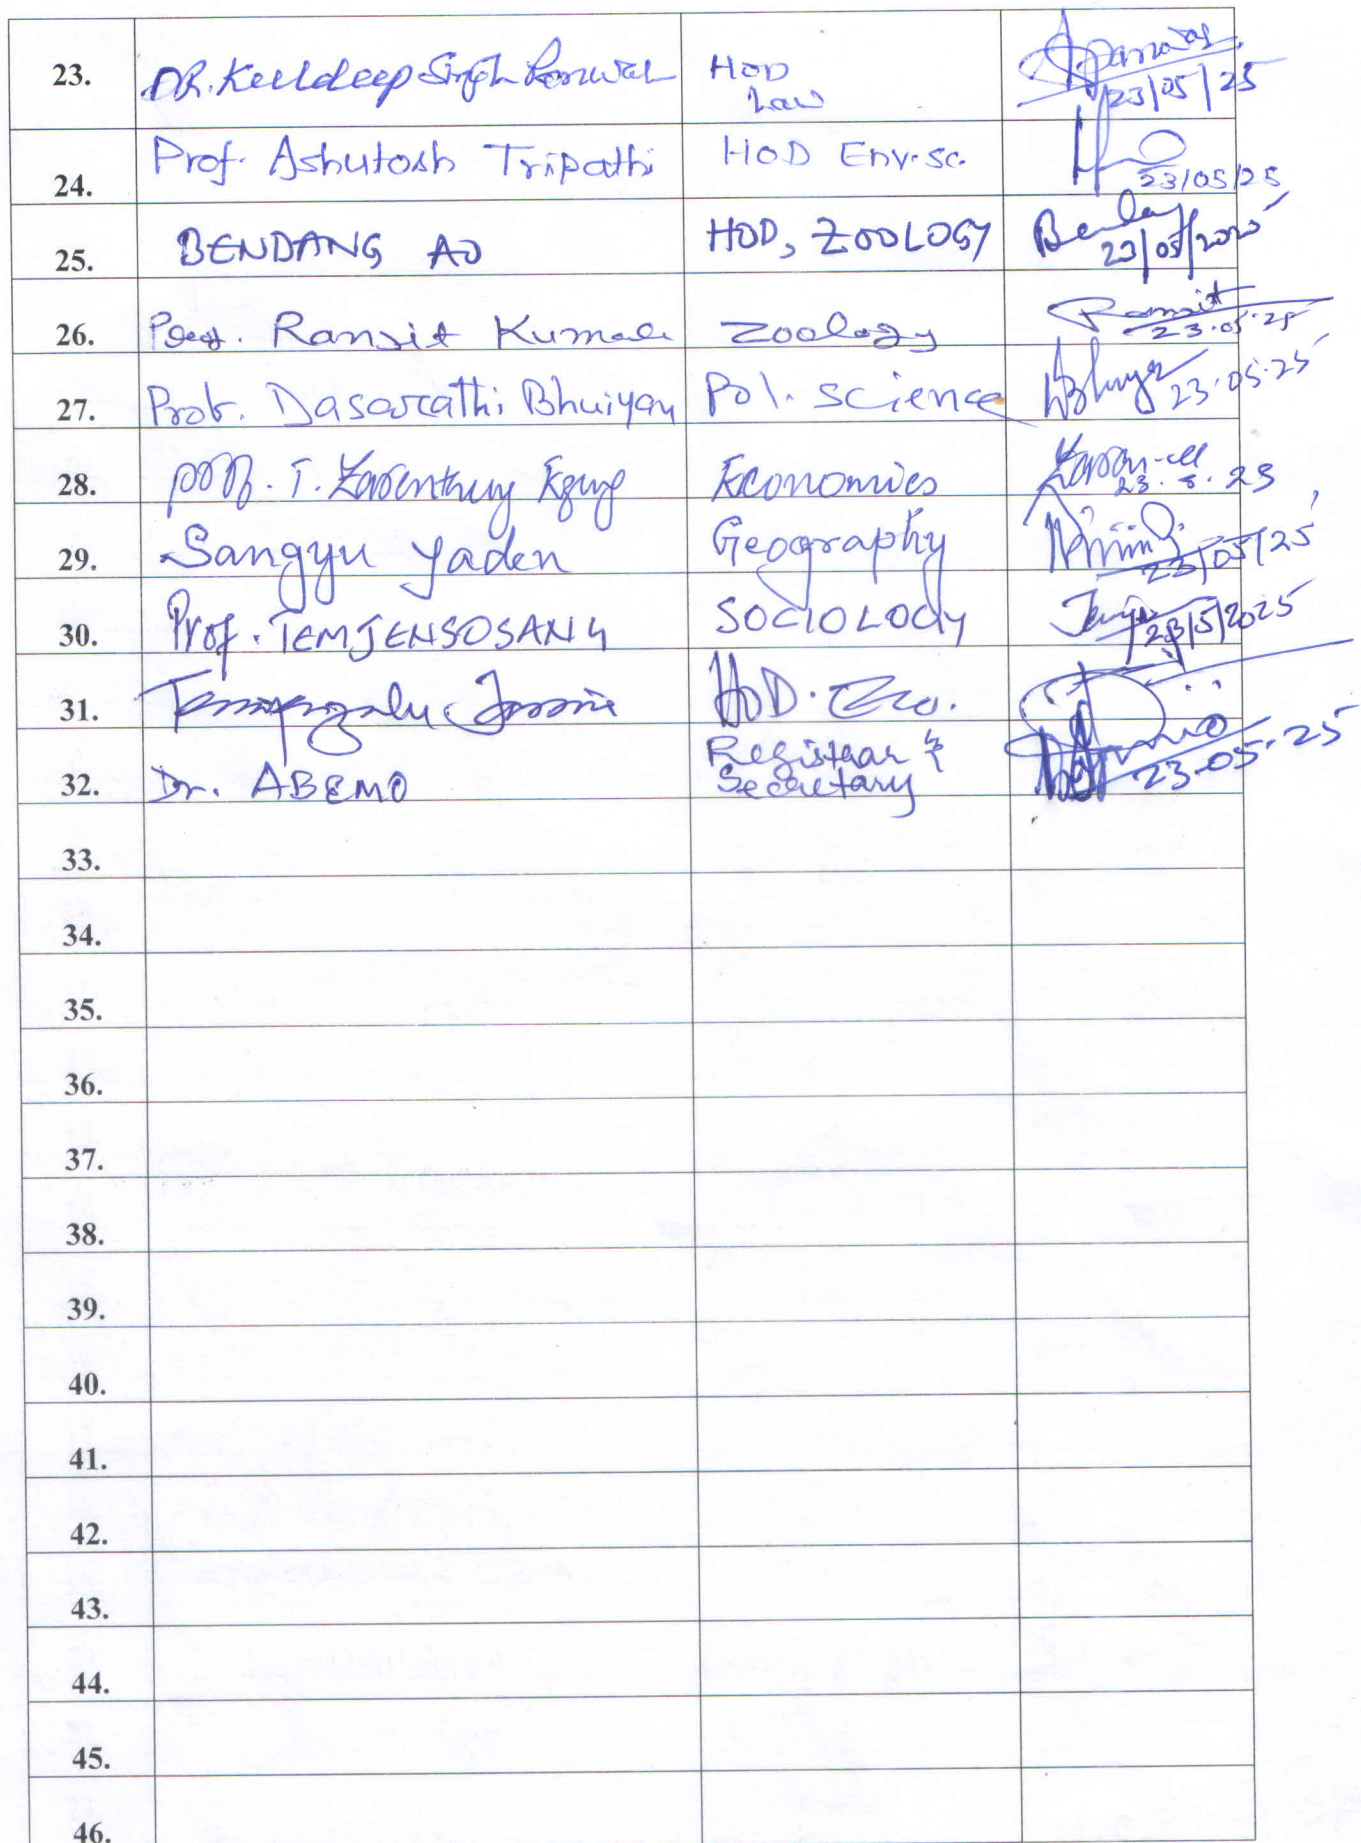 23. DR. Kuldeep Singh Panwar HOD Law Panwar 23/05/25
24. Prof. Ashutosh Tripathi HOD Env. Sc. 23/05/25
25. BENDANG AO HOD, ZOOLOGY 23/05/2025
26. Prof. Ranjit Kumar Zoology Ranjit 23.05.25
27. Prof. Dasarathi Bhuiyan Pol. Science 23.05.25
28. Prof. T. Economics 23.5.25
29. Sangyu Yaden Geography 23/05/25
30. Prof. TEMJENSOSANG SOCIOLOGY 23/5/2025
31. HOD. Eco.
32. Dr. ABEMO Registrar & Secretary 23.05.25
33.
34.
35.
36.
37.
38.
39.
40.
41.
42.
43.
44.
45.
46.